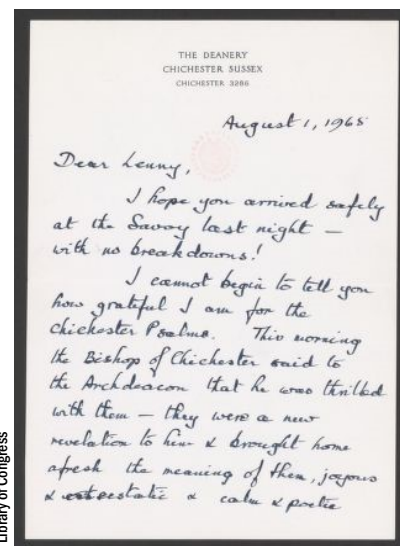 THE DEANERY
CHICHESTER SUSSEX
CHICHESTER 3286
August 1, 1965
Dear Lenny,
I hope you arrived safely
at the Savoy last night —
with no breakdowns!
I cannot begin to tell you
how grateful I am for the
Chichester Psalms. This morning
the Bishop of Chichester said to
the Archdeacon that he was thrilled
with them — they were a new
revelation to him & brought home
afresh the meaning of them, joyous
& ecstatic & calm & poetic
Library of Congress